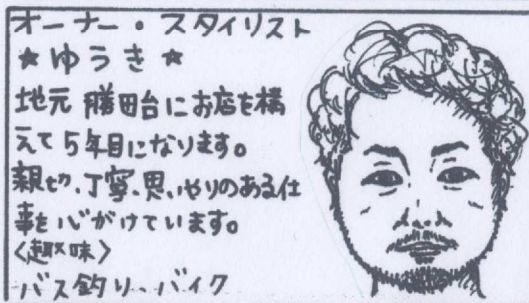 オーナー・スタイリスト
★ゆうき★
地元 勝田台にお店を構
えて5年目になります。
親切、丁寧、思いやりのある仕
事を心がけています。
<趣味>
バス釣り、バイク